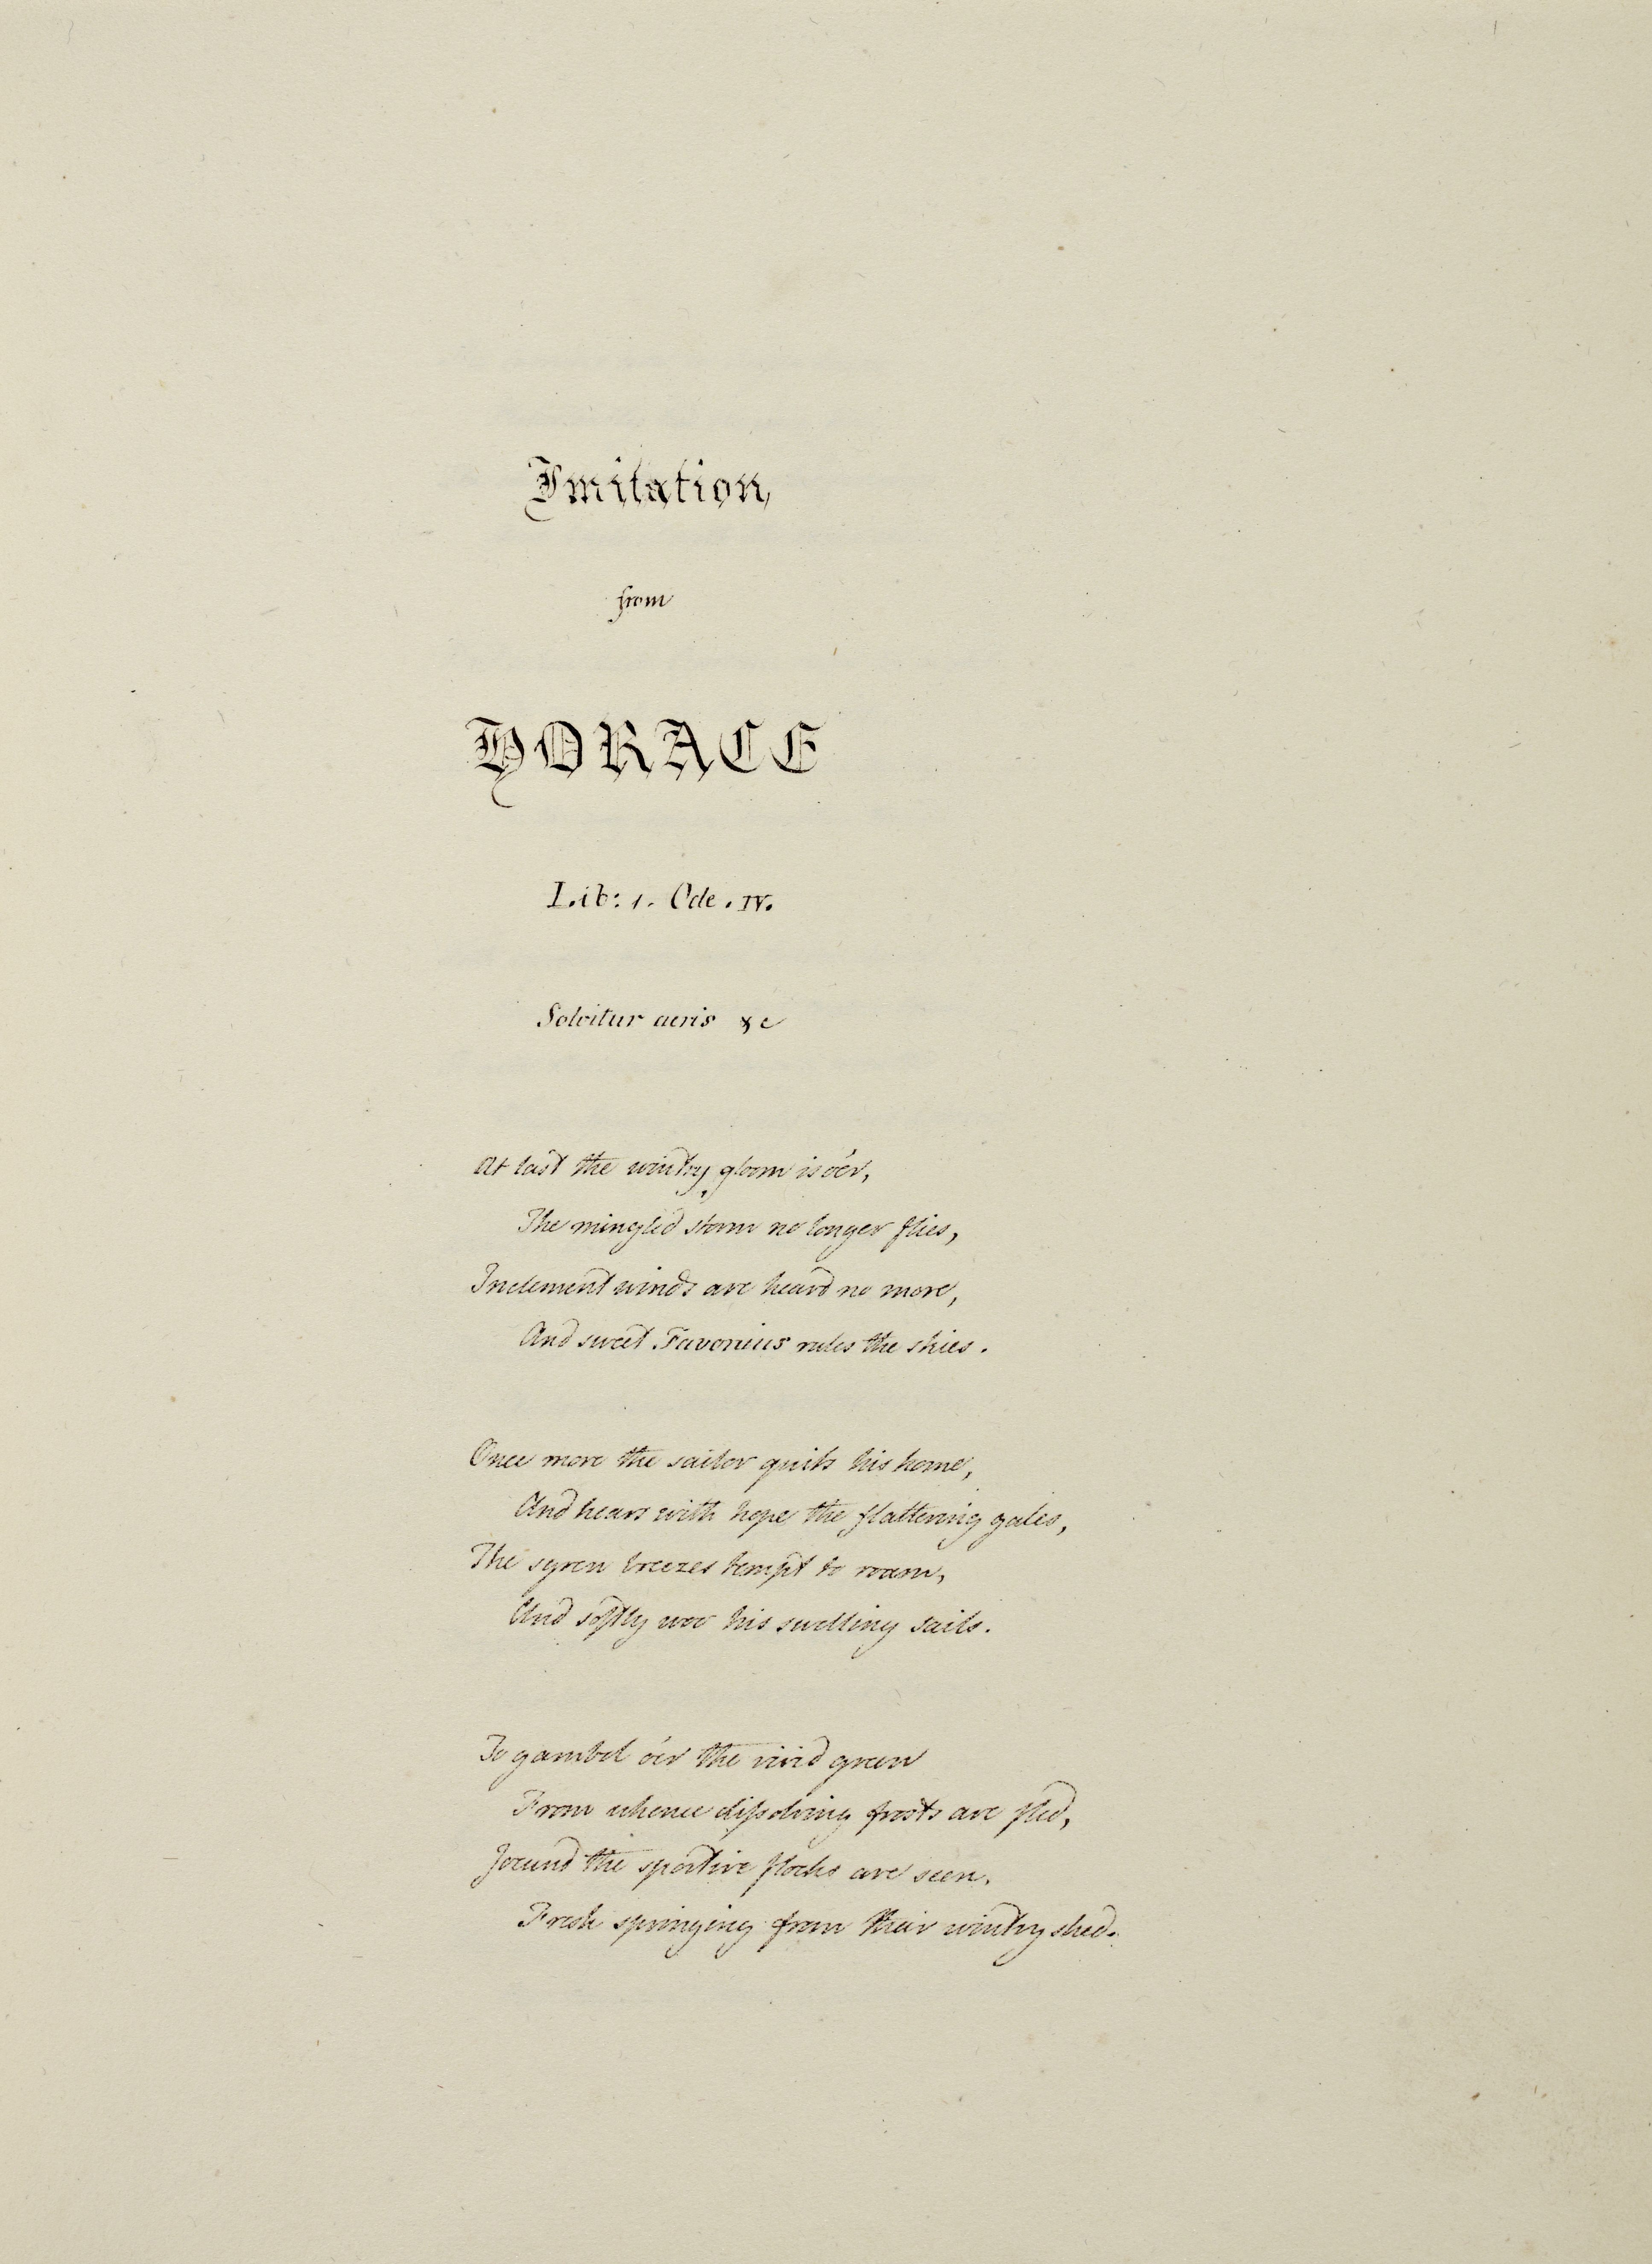 Imitation,
from
HORACE
Lib: 1. Ode. IV.
Solvitur acris &c
At last the wintry gloom is o'er,
The mingled storm no longer flies,
Inclement winds are heard no more,
And sweet Favonius rules the skies.
Once more the sailor quits his home,
And hears with hope the flattering gales,
The syren breezes tempt to roam,
And softly woo his swelling sails.
To gambol o'er the vivid green
From whence dissolving frosts are fled,
Jocund the sportive flocks are seen,
Fresh springing from their wintry shed.